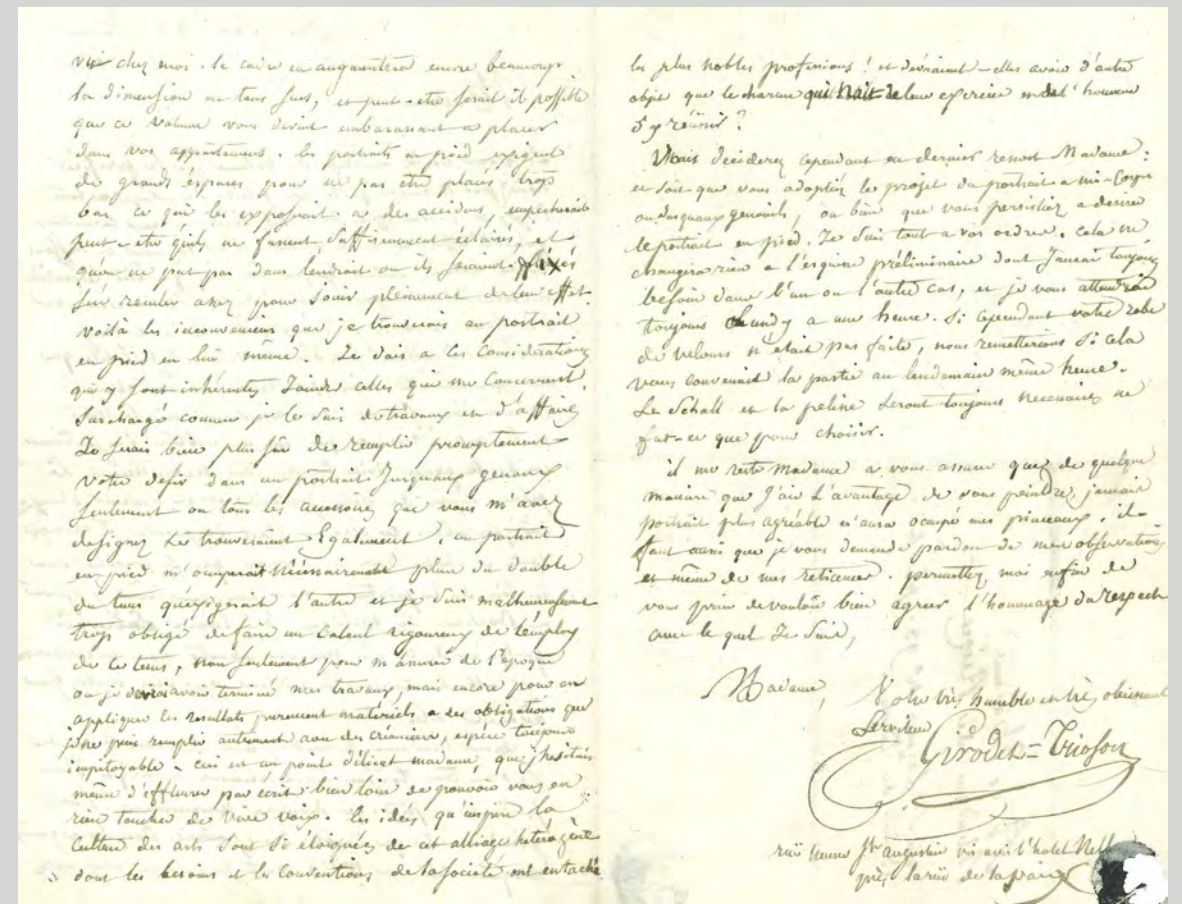 vüe chez moi. le cadre en augmentera encore beaucoup
la dimension en tous sens, et peut-etre serait il possible
que ce volume vous devint embarassant a placer
dans vos appartemens. les portraits en pied exigent
de grands espaces pour ne pas etre placés trop
bas ce qui les exposerait a des accidens, empecherait
peut-etre qu'ils ne fussent suffisamment éclairés, et
qu'on ne put pas dans lendroit ou ils seraient fixés
se reculer assez pour jouir pleinement de leur effet.
voilà les inconveniens que je trouverais au portrait
en pied en lui même. Je dois a ces considerations
qui y sont inhérentes joindre celles qui me concernent.
Surchargé comme je le suis de travaux et d'affaires
Je serais bien plus sûr de remplir promptement
votre desir dans un portrait jusquaux genoux
seulement ou tous les accessoires que vous m'avez
designez se trouveraient Egalement. un portrait
en pied m'occuperait nécessairement plus du double
du tems qu'exigerait l'autre et je suis malheureusement
trop obligé de faire un calcul rigoureux de l'employ
de ce tems, non seulement pour m'assurer de l'époque
ou je devrai avoir terminé mes travaux, mais encore pour en
appliquer les resultats purement matériels a des obligations que
je ne puis remplir autrement avec des créanciers, espèce toujours
impitoyable - ceci est un point délicat madame, que j'hesitais
même d'effleurer par écrit bien loin de pouvoir vous en
rien toucher de vive voix. les idées qu'inspire la
culture des arts sont si éloignées de cet alliage hétérogène
dont les besoins et les conventions de la société ont entaché
les plus nobles professions ! et devraient-elles avoir d'autre
objet que le charme qui nait de leur exercice et de l'honneur
d'y réussir ?
Vous déciderez cependant en dernier ressort Madame :
et soit que vous adoptiez le projet du portrait a mi-corps
ou jusquaux genouils, ou bien que vous persistiez a desirer
le portrait en pied. Je suis tout a vos ordres. Cela ne
changera rien a l'esquisse préliminaire dont j'aurai toujours
besoin dans l'un ou l'autre cas, et je vous attendrai
toujours Lundy a une heure. Si cependant votre robe
de velours n'était pas faite, nous remetterions si cela
vous convenait la partie au lendemain même heure.
Le Schall et la peline seront toujours necessaires ne
fut-ce que pour choisir.
il me reste Madame a vous assurer que de quelque
maniere que j'aie l'avantage de vous peindre, jamais
portrait plus agréable n'aura occupé mes pinceaux. il
faut aussi que je vous demande pardon de mes observations
et même de mes reticences. permettez moi enfin de
vous prier de vouloir bien agréer l'hommage du respect
avec le quel Je suis,
Madame, Votre très humble et très obeissant
Serviteur
Girodet=Trioson
rüe neuve St augustin vis avis l'hotel
près la rüe de la paix